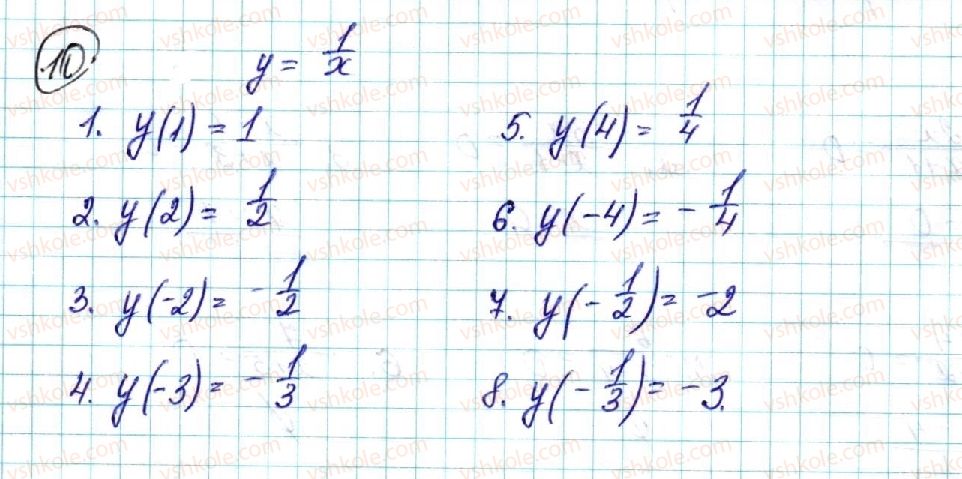 10
y = 1/x
1. y(1) = 1
2. y(2) = 1/2
3. y(-2) = -1/2
4. y(-3) = -1/3
5. y(4) = 1/4
6. y(-4) = -1/4
7. y(-1/2) = -2
8. y(-1/3) = -3.
vshkole.com